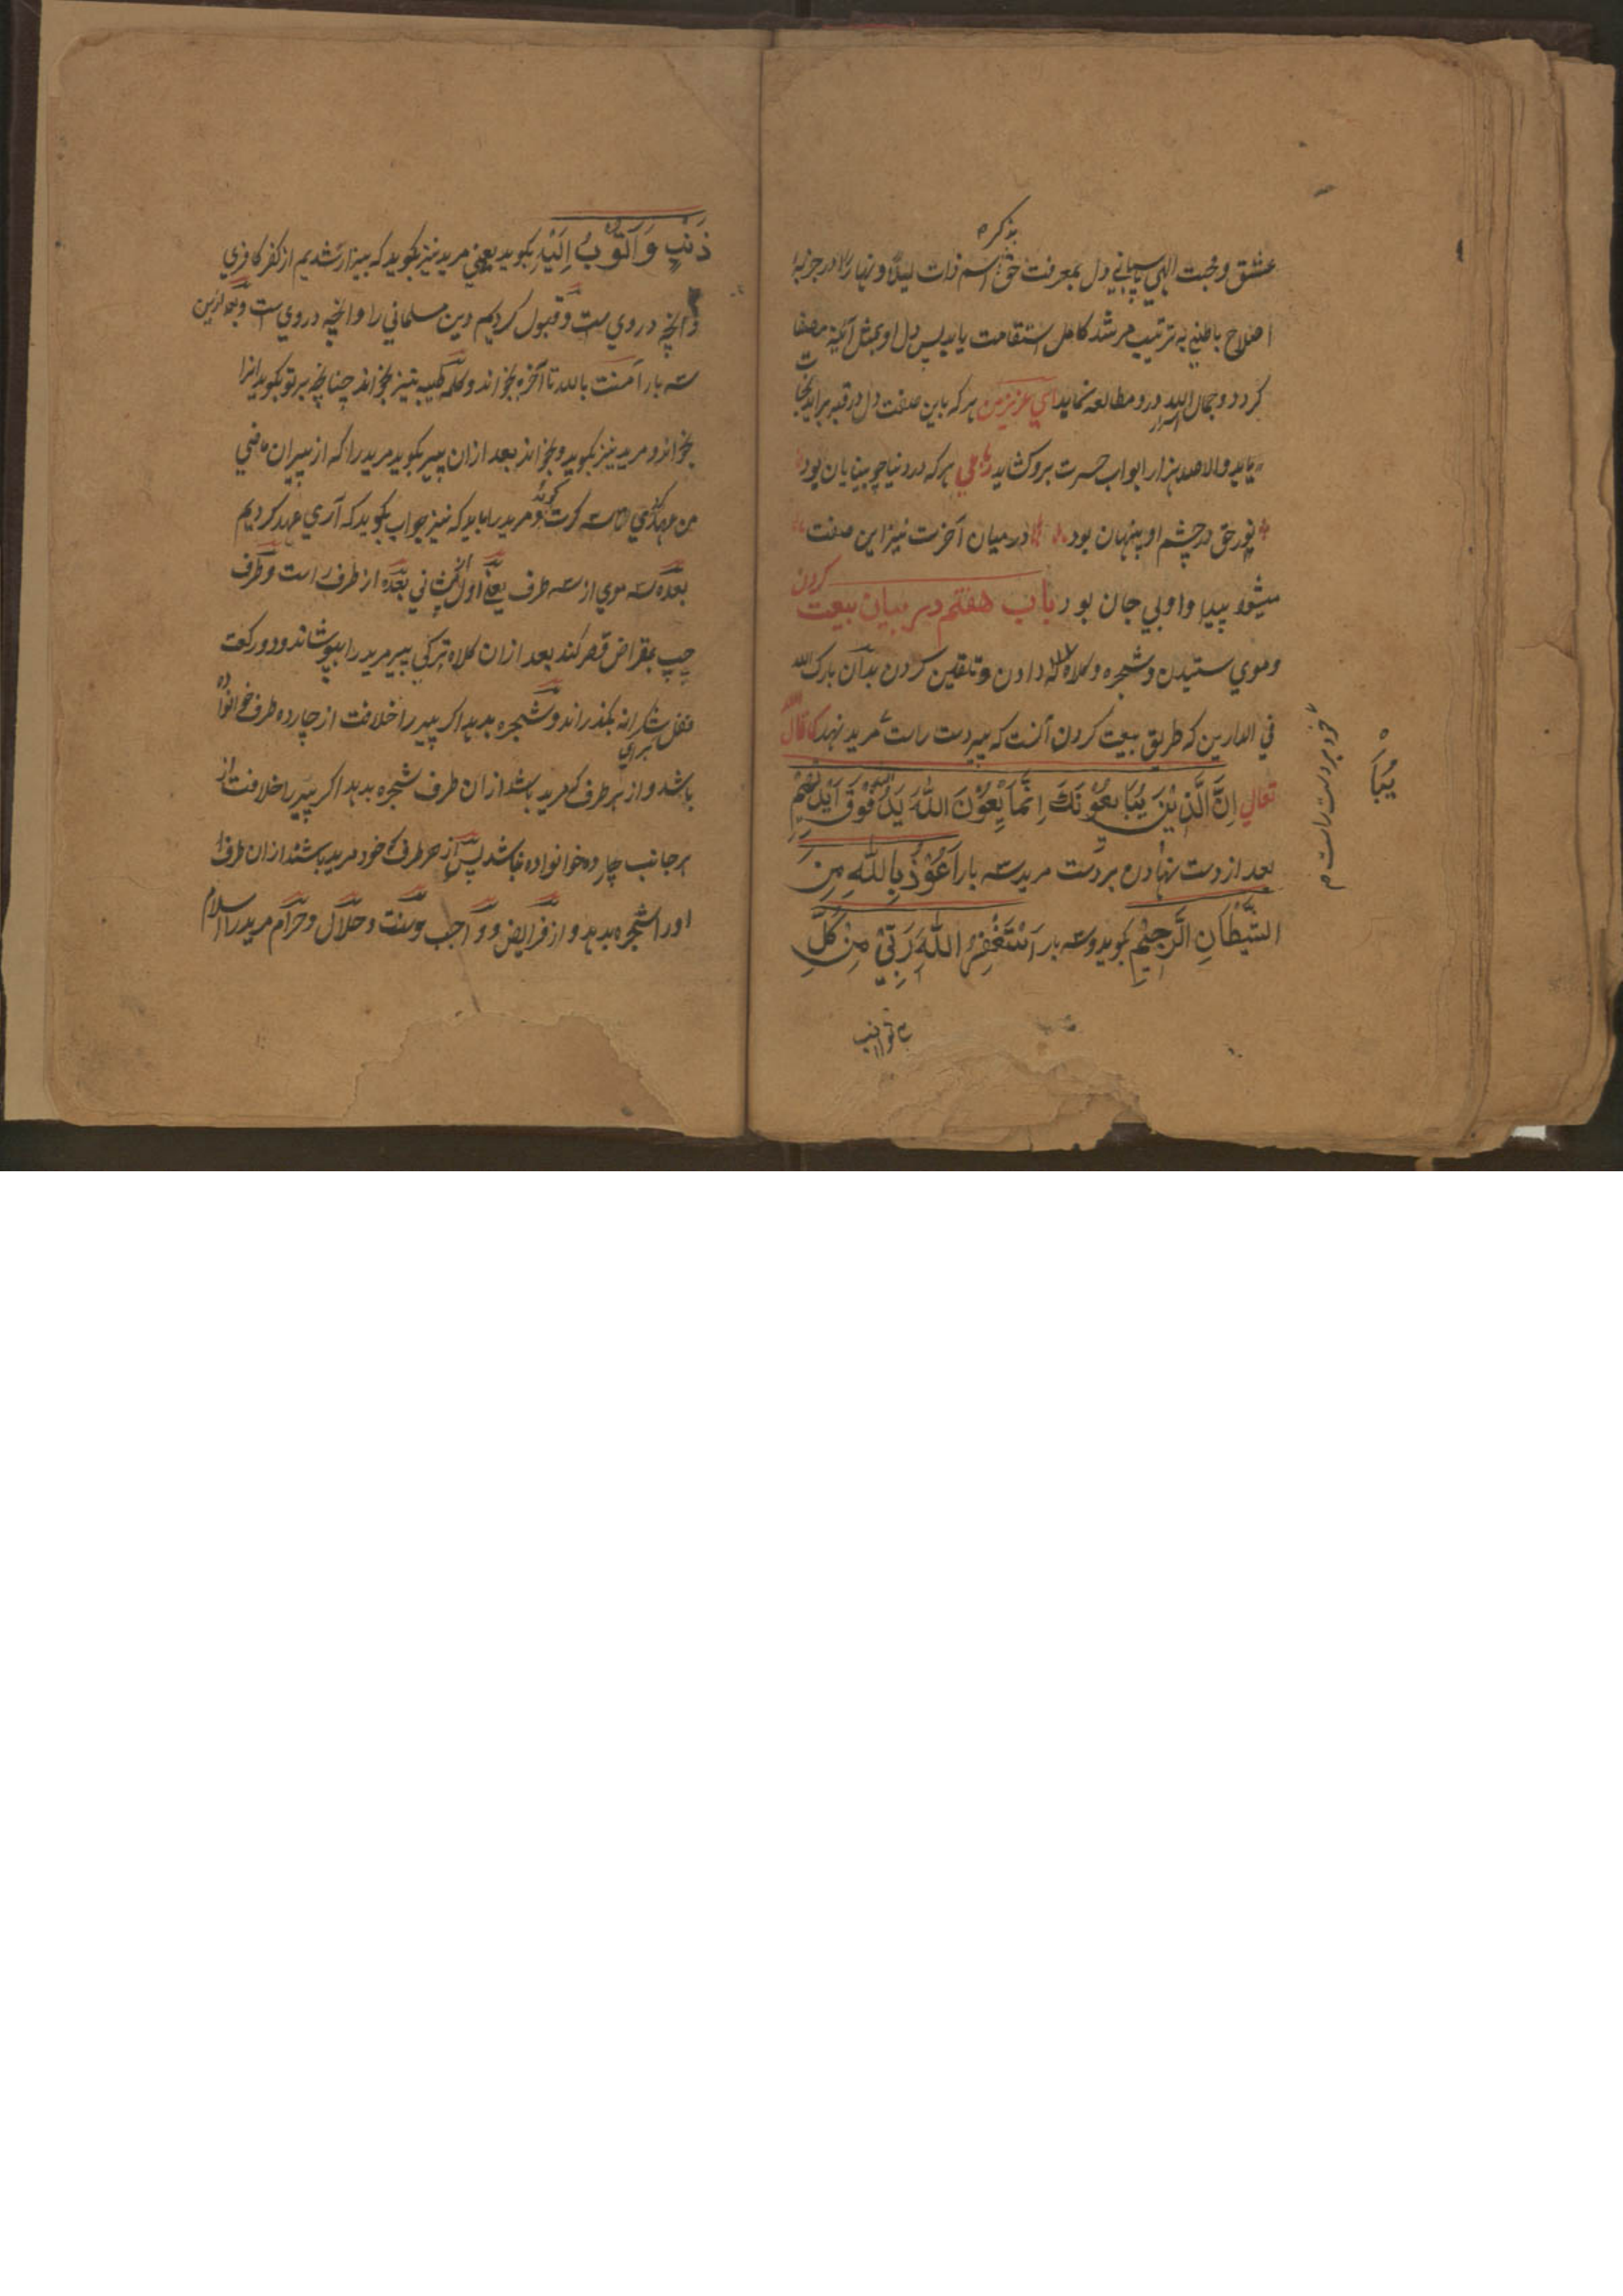 بذکر م
عشق و محبت الهی پاسبانی دل بمعرفت حق اسم ذات لیلاً و نهاراً در جزبۀ
اصلاح باطنی به ترتیب مرشد کامل استقامت یابد پس دل او بمثل آئینه مصفا
کردد و جمال الله درو مطالعه نماید ای عزیز من هر که باین صفت دل در قبر برابد نجات
یابد والا صد هزار ابواب حسرت برو کشاید رباعی هر که در دنیا چو بینایان بود
نور حق در چشم او پنهان بود در میان آخرت نیز این صفت
میشود پیدا و اوبی جان بود باب هفتم در بیان بیعت کردن
و موی ستیدن و شجره و کلاه دادن و تلقین کردن بدان بارک الله
فی الدارین که طریق بیعت کردن آنست که پیر دست راست مرید نهد کما قال الله
تعالی اِنَّ الَّذِیْنَ یُبَایِعُوْنَكَ اِنَّمَا یَعُوْنَ اللّٰهَ یَدُ اللّٰهِ فَوْقَ اَیْدِیْهِمْ
بعد از دست نهادن بر دست مرید سه بار اَعُوْذُ بِاللّٰهِ مِنَ
الشَّیْطَانِ الرَّجِیْمِ بکوید و سه بار اَسْتَغْفِرُ اللّٰهَ رَبِّیْ مِنْ کُلِّ
خود بر دست راست م
یُبَا
ذَنْبٍ وَاَتُوْبُ اِلَیْهِ بکوید یعنی مرید نیز بکوید که بیزار شدیم از کفر کافری
وانچه در وی ست و قبول کردیم دین مسلمانی را وانچه در وی ست و بعد ازین
سه بار آمنت بالله تا آخره بخواند و کلمه طیبه نیز بخواند چنانچه پیر تو بکوید انرا
بخواند و مرید نیز بکوید و بخواند بعد ازان پیر بکوید مرید را که از پیران ماضی
من عهد کردی تا سه کرت کوید و مرید را باید که نیز جواب بکوید که آری عهد کردیم
بعده سه موی از سه طرف یعنی اول از پیشانی بعده از طرف راست و طرف
چپ بمقراض قصر کند بعد ازان کلاه ترکی پیر مرید را بپوشاند و دو رکعت
نفل شکرانه بکذراند و شجره بدهد اکر پیر را خلافت از چارده طرف خوانواده
باشد و از هر طرف که مرید باشد ازان طرف شجره بدهد اکر پیر را خلافت از
هر جانب چارده خوانواده نباشد پس از هر طرف که خود مرید باشد ازان طرف
اورا شجره بدهد و از فرایض و واجب و سنت و حلال و حرام مرید را اسلام